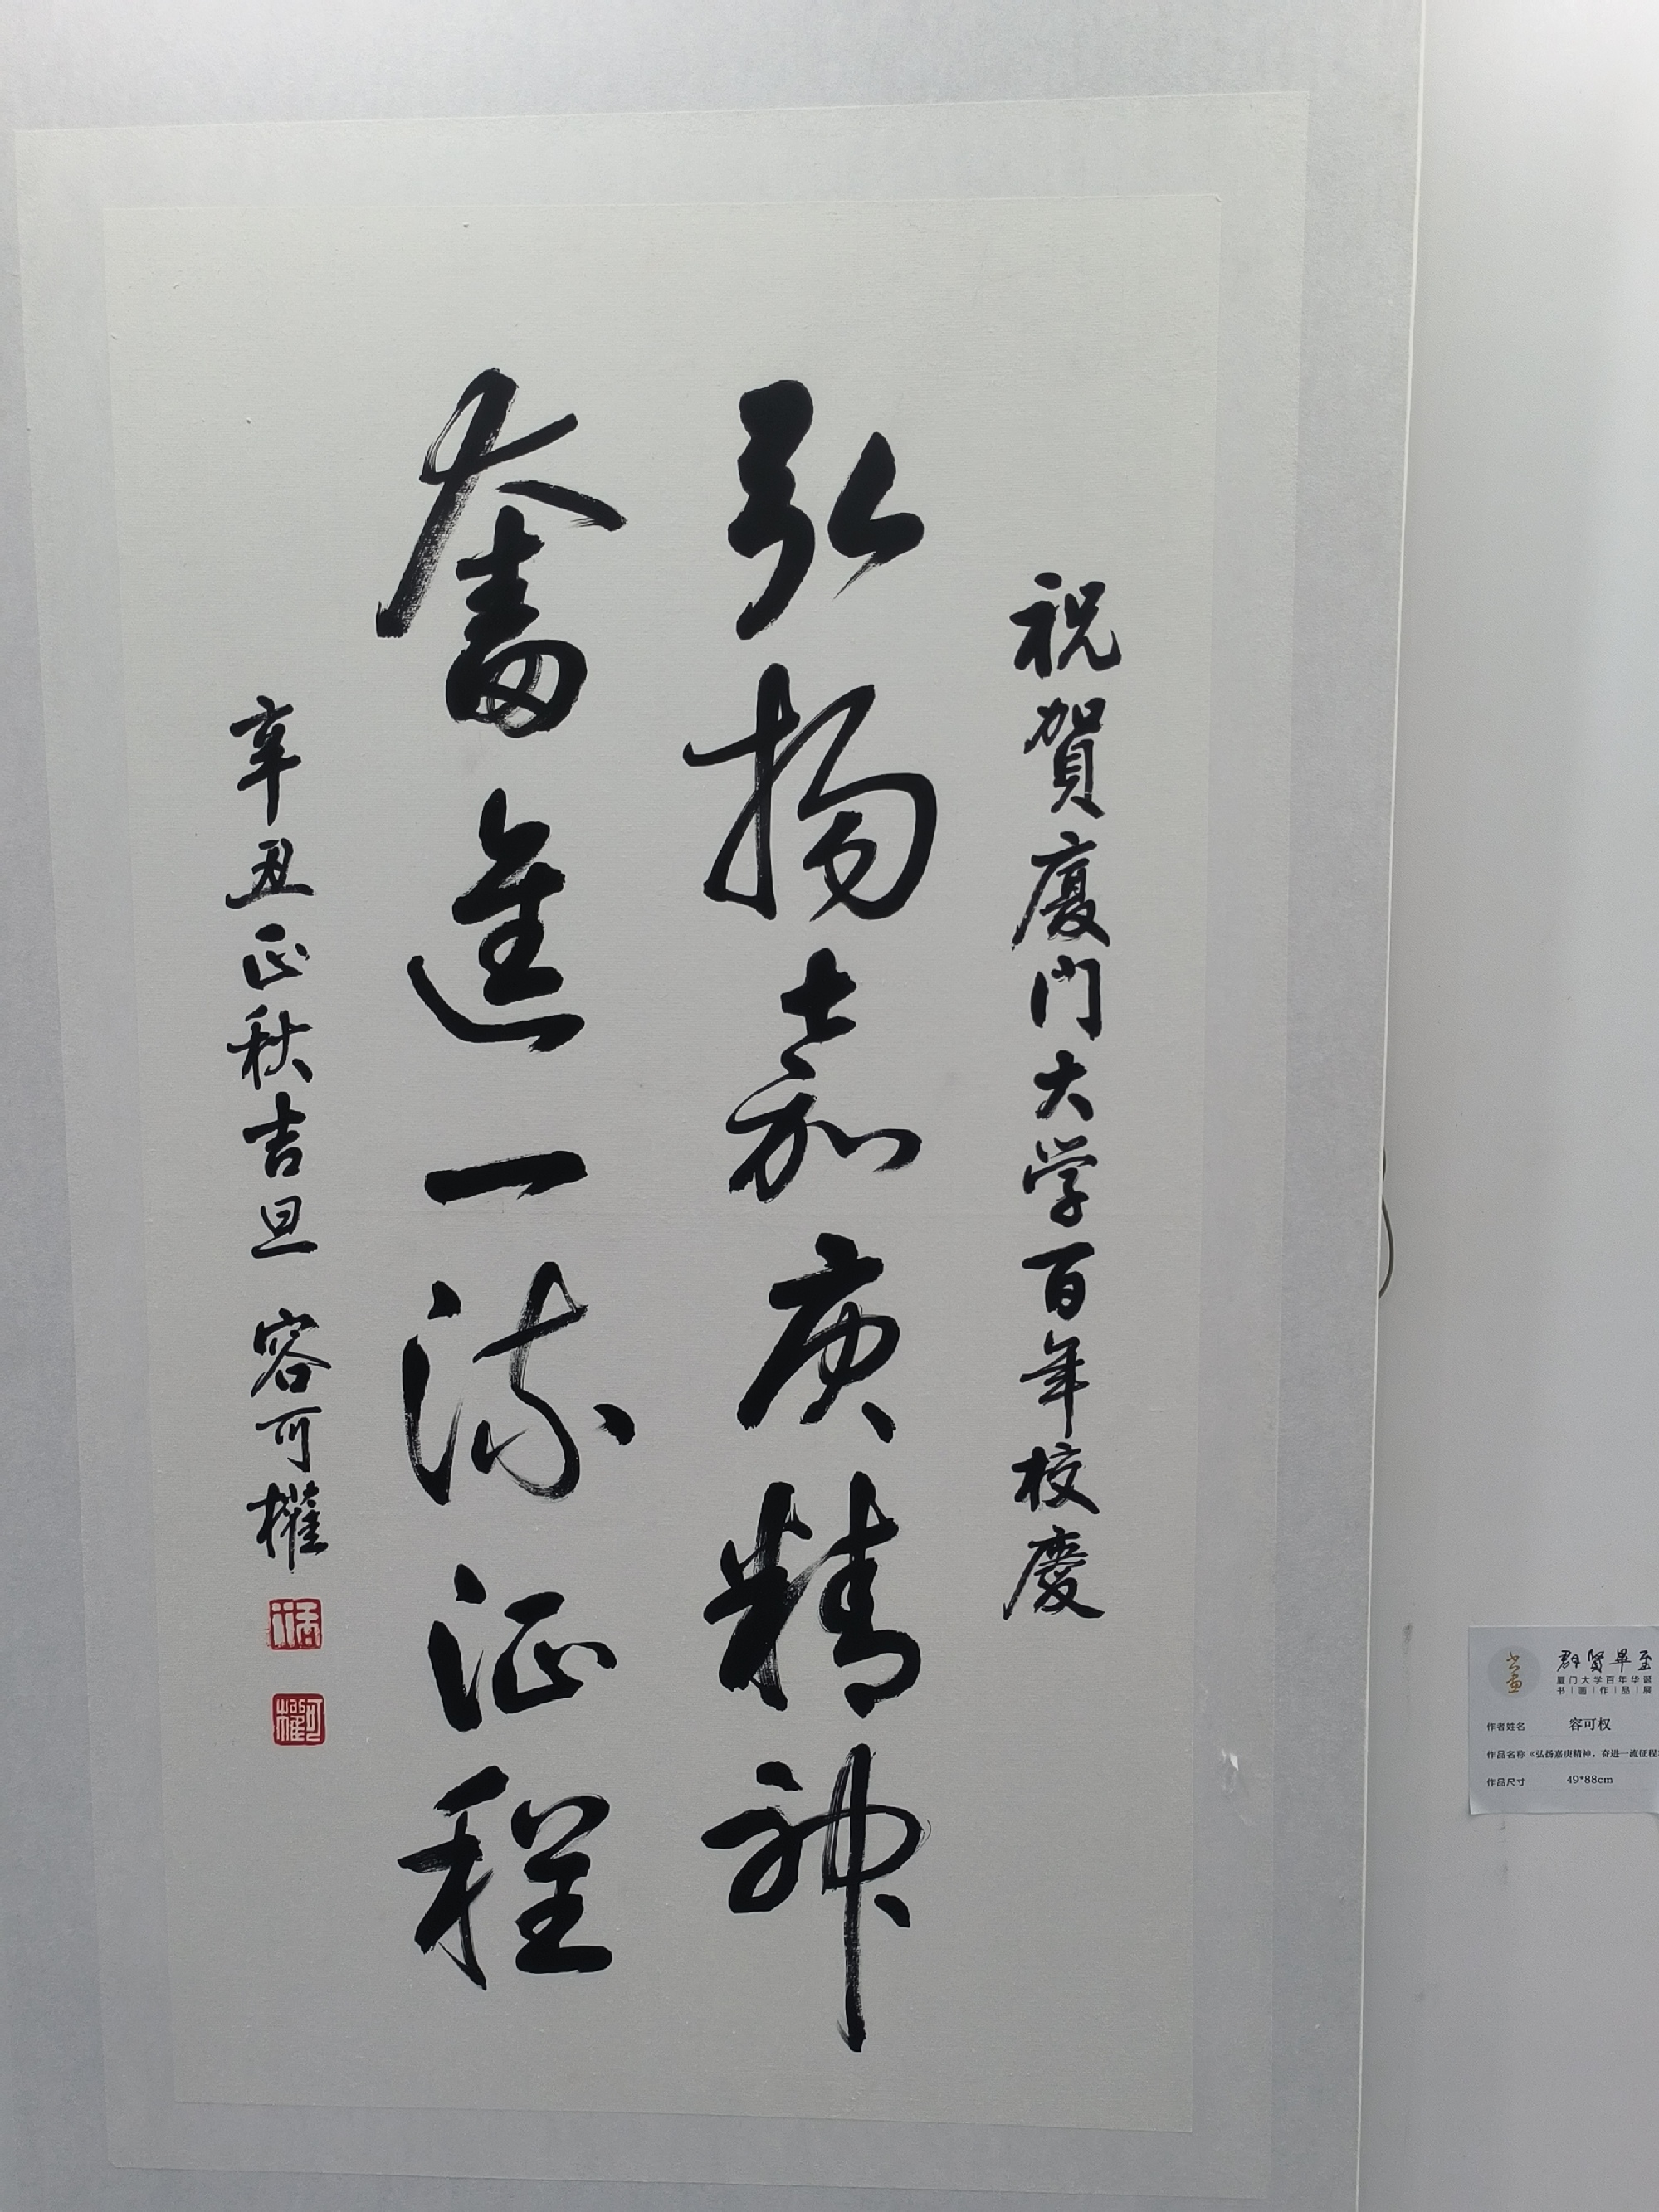 祝賀廈門大学百年校慶
弘揚嘉庚精神
奮進一流征程
辛丑正秋吉旦 容可權
可權
群贤畢至
厦门大学百年华诞
书|画|作|品|展
作者姓名 容可权
作品名称《弘扬嘉庚精神，奋进一流征程
作品尺寸 49*88cm